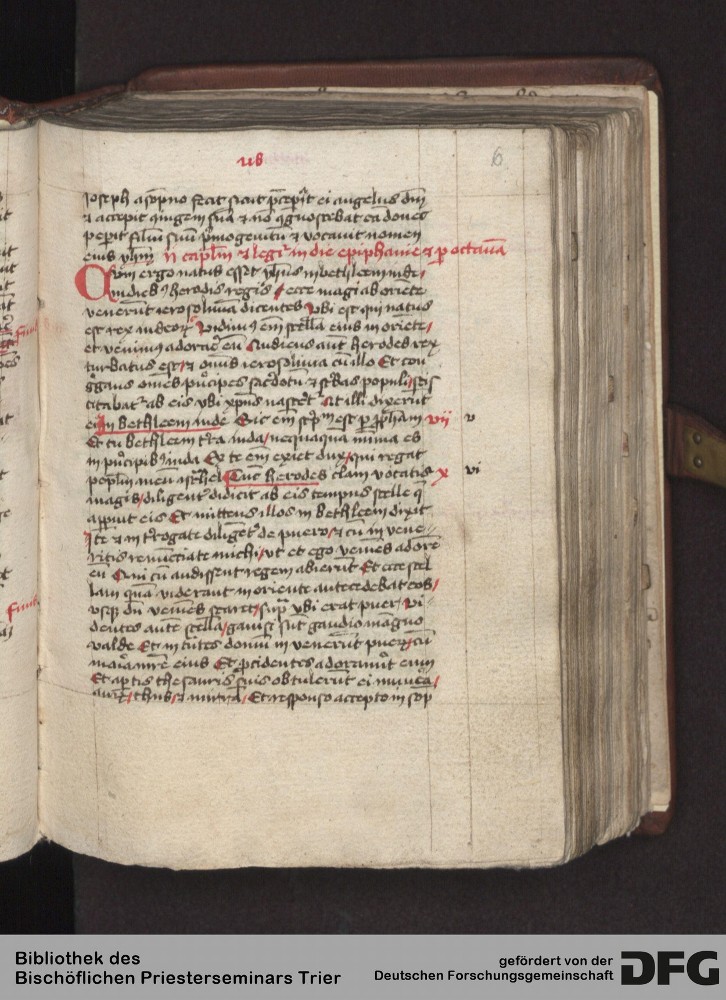 us
6
Joseph a sompno fecit sicut precepit ei angelus dni
et accepit coniugem suam et non cognoscebat eam donec
peperit filium suum primogenitum et vocavit nomen
eius ihm ii caplm et legitur in die epiphanie et per octavam
Cum ergo natus esset ihus in bethleem iude
in diebus herodis regis / ecce magi ab oriente
venerunt ierosolimam dicentes Vbi est qui natus
est rex iudeorum Vidimus enim stellam eius in oriente /
et venimus adorare eum Audiens aut herodes rex
turbatus est / et omnis ierosolima cum illo Et con
gregans omnes principes sacerdotum et scribas populi
scitabatur ab eis vbi xpus nasceretur At illi dixerunt
ei In bethleem iude Sic enim scriptum est per prophetam vii v
Et tu bethleem terra iuda / nequaquam minima es
in principibus iuda Ex te enim exiet dux / qui regat
populum meum israhel Tunc herodes clam vocatis x vi
magis / diligenter didicit ab eis tempus stelle que
apparuit eis Et mittens illos in bethleem dixit
Ite et interrogate diligenter de puero / et cum inuene
ritis renunciate michi / vt et ego veniens adorem
eum Qui cum audissent regem abierunt Et ecce stel
lam quam viderant in oriente antecedebat eos /
vsque dum veniens staret / supra vbi erat puer Vi
dentes autem stellam / gauisi sunt gaudio magno
valde Et intrantes domum inuenerunt puerum / cum
maria matre eius Et procidentes adorauerunt eum
Et apertis thesauris suis obtulerunt ei munera /
aurum / thus / et mirram / Et responso accepto in somp
Bibliothek des
Bischöflichen Priesterseminars Trier
gefördert von der
Deutschen Forschungsgemeinschaft
DFG